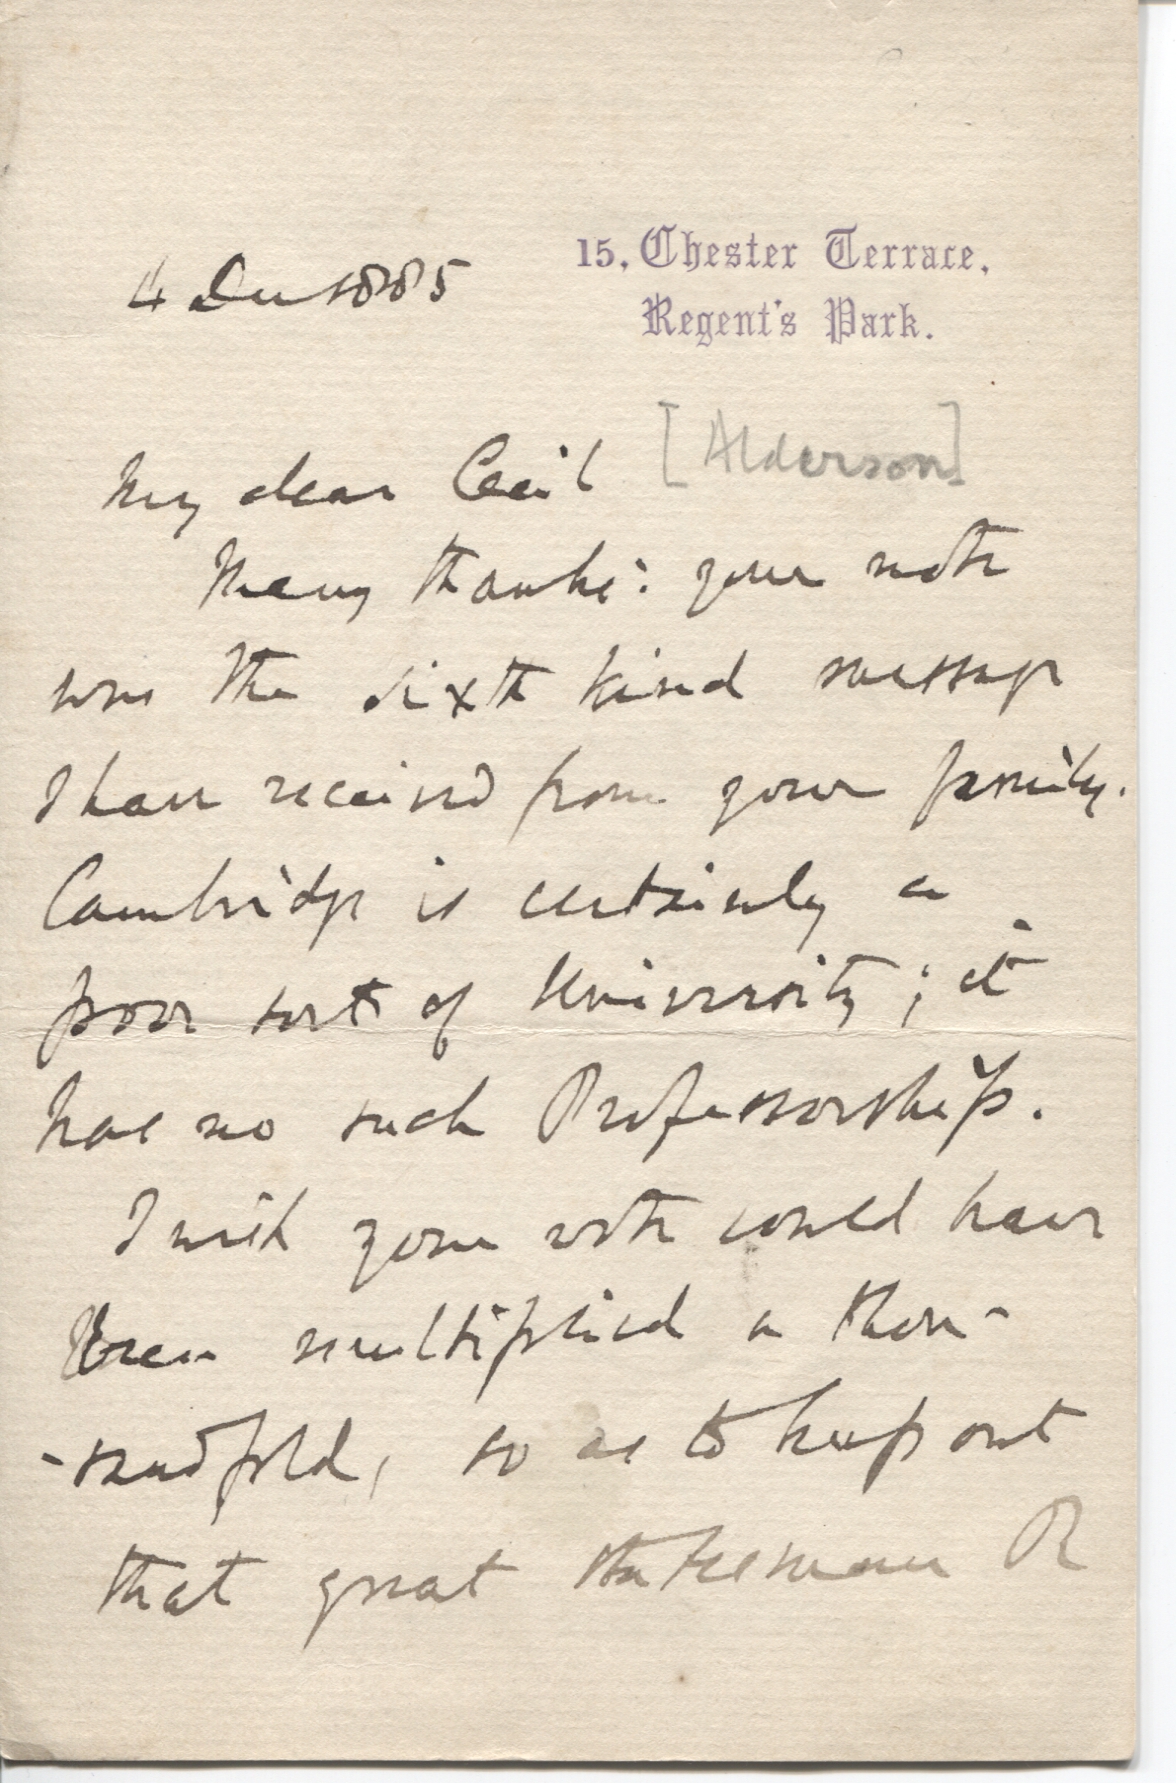 15, Chester Terrace,
Regent's Park.
4 Dec 1885
My dear Cecil [Alderson]
Many thanks: your note
was the sixth kind message
I have received from your family.
Cambridge is certainly a
poor sort of University; it
has no such Professorship.
I wish your vote could have
been multiplied a thou-
-sandfold, so as to keep out
that great statesman R